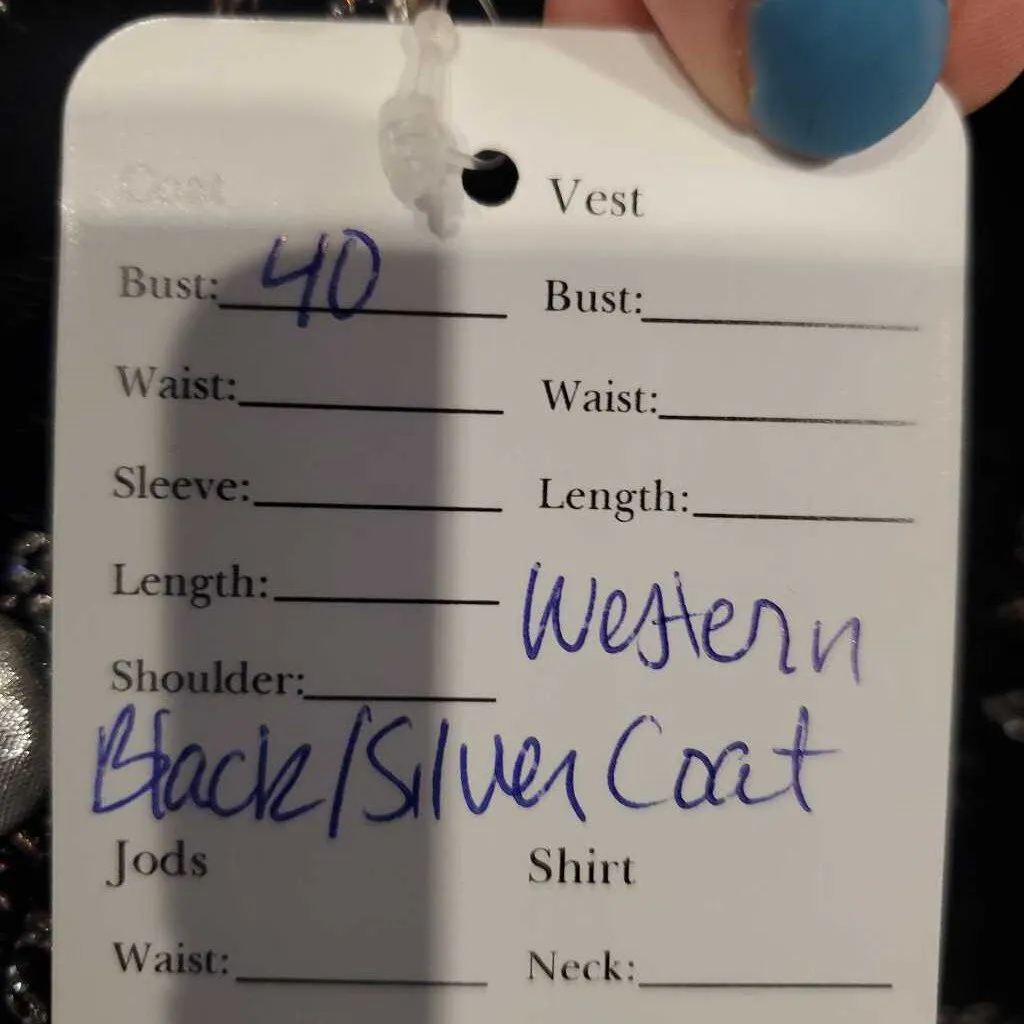 Coat
Vest
Bust: 40
Bust:
Waist:
Waist:
Sleeve:
Length:
Length:
Western
Shoulder:
Black/Silver Coat
Jods
Shirt
Waist:
Neck: